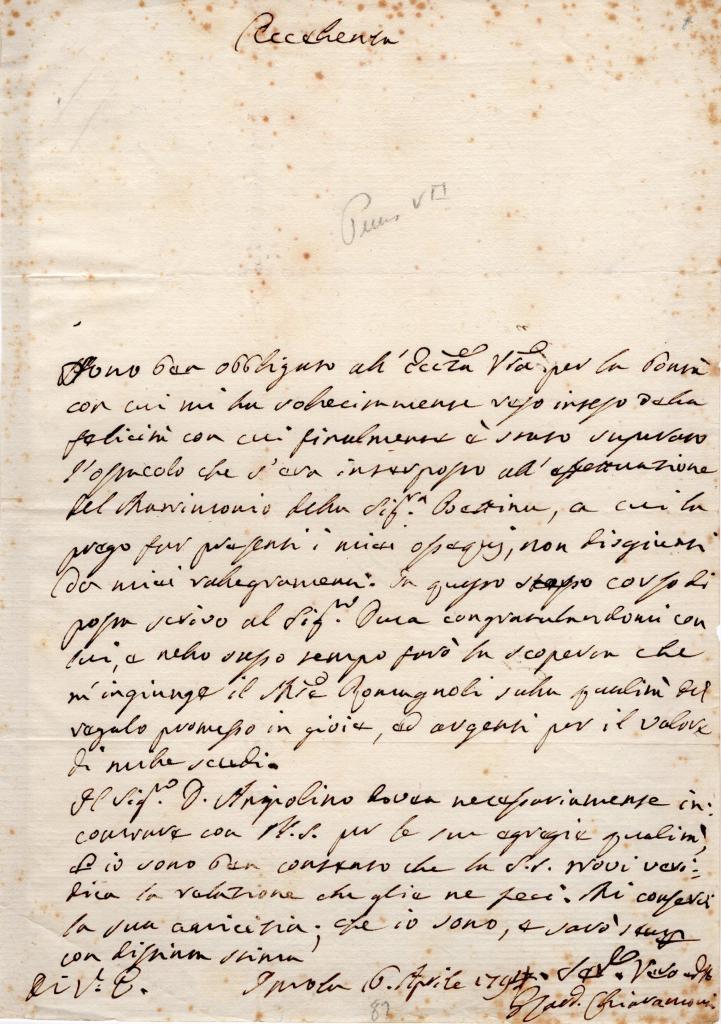 Eccellenza
Pius VII
Sono ben obbligato all' Eccza Vra per la bontà
con cui mi ha sollecitamente reso inteso della
felicità con cui finalmente è stato superato
l'ostacolo che s'era interposto all'effettuazione
del Matrimonio della Sigra Bettina, a cui la
prego far presenti i miei ossequj, non disgiunti
da miei rallegramenti. In questo stesso corso di
posta scrivo al Sigr Duca congratulandomi con
lui, e nello stesso tempo farò la scoperta che
m'ingiunge il Romagnoli sulla qualità del
regalo promesso in gioie, ed argenti per il valore
di mille scudi.
Il Sigr D. Angiolino dovea necessariamente in:
contrare con per le sue egregie qualità,
ed io sono ben contento che la trovi veri:
dica la relazione che gliene feci. Mi conservi
la sua amicizia, che io sono, e sarò
con distinta stima
Di V. E. Imola 6. Aprile
Chiaramonti
82